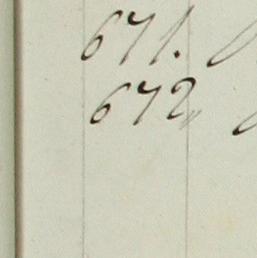 671.
672,,